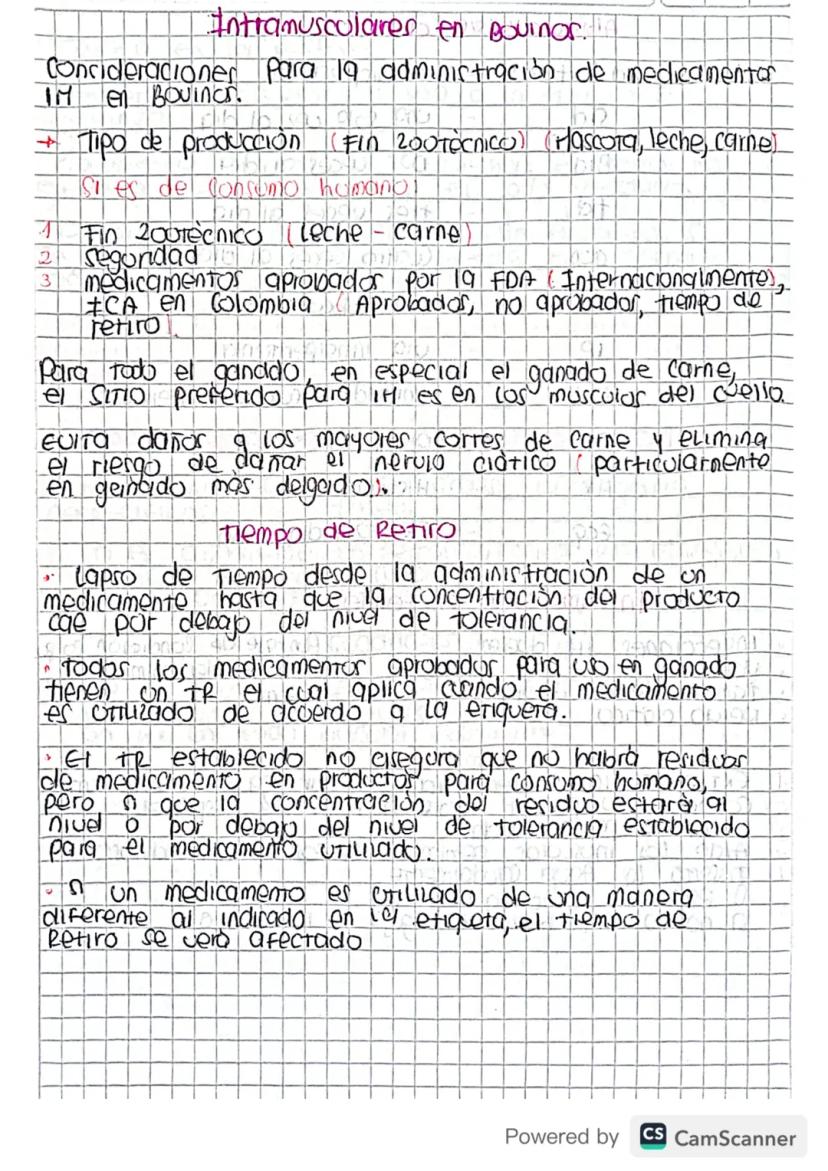 Intramusculares en Bovinos.
Concideraciones para la administración de medicamentos
IM en Bovinos.
→ Tipo de producción (Fin zootècnico) (Mascota, leche, carne)
Si es de consumo humano:
1 Fin zootècnico (leche - carne)
2 seguridad
3 medicamentos aprobados por la FDA (Internacionalmente),
ICA en Colombia (Aprobados, no aprobados, tiempo de
retiro).
Para todo el ganado, en especial el ganado de carne,
el sitio preferido para IM es en los musculos del cuello.
Evita daños a los mayores cortes de carne y elimina
el riesgo de dañar el nervio ciático (particularmente
en ganado más delgado).
Tiempo de Retiro
· Lapso de Tiempo desde la administración de un
medicamento hasta que la concentración del producto
cae por debajo del nivel de tolerancia.
· Todos los medicamentos aprobados para uso en ganado
tienen un TR el cual aplica cuando el medicamento
es utilizado de acuerdo a la etiqueta.
· El TR establecido no asegura que no habrá residuos
de medicamento en productos para consumo humano,
pero si que la concentración del residuo estará al
nivel o por debajo del nivel de tolerancia establecido
para el medicamento utilizado.
· Si un medicamento es utilizado de una manera
diferente al indicado en la etiqueta, el tiempo de
Retiro se verá afectado
Powered by CS CamScanner